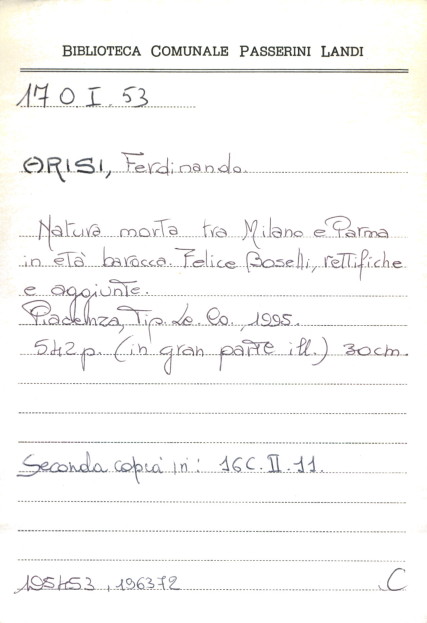 BIBLIOTECA COMUNALE PASSERINI LANDI
170 I. 53
ARISI, Ferdinando.
Natura morta tra Milano e Parma
in età barocca. Felice Boselli, rettifiche
e aggiunte.
Piacenza, Tip. Le. Co., 1995.
542 p. (in gran parte ill.) 30 cm.
Seconda copia in: 16C. II. 11.
195453, 196372
C